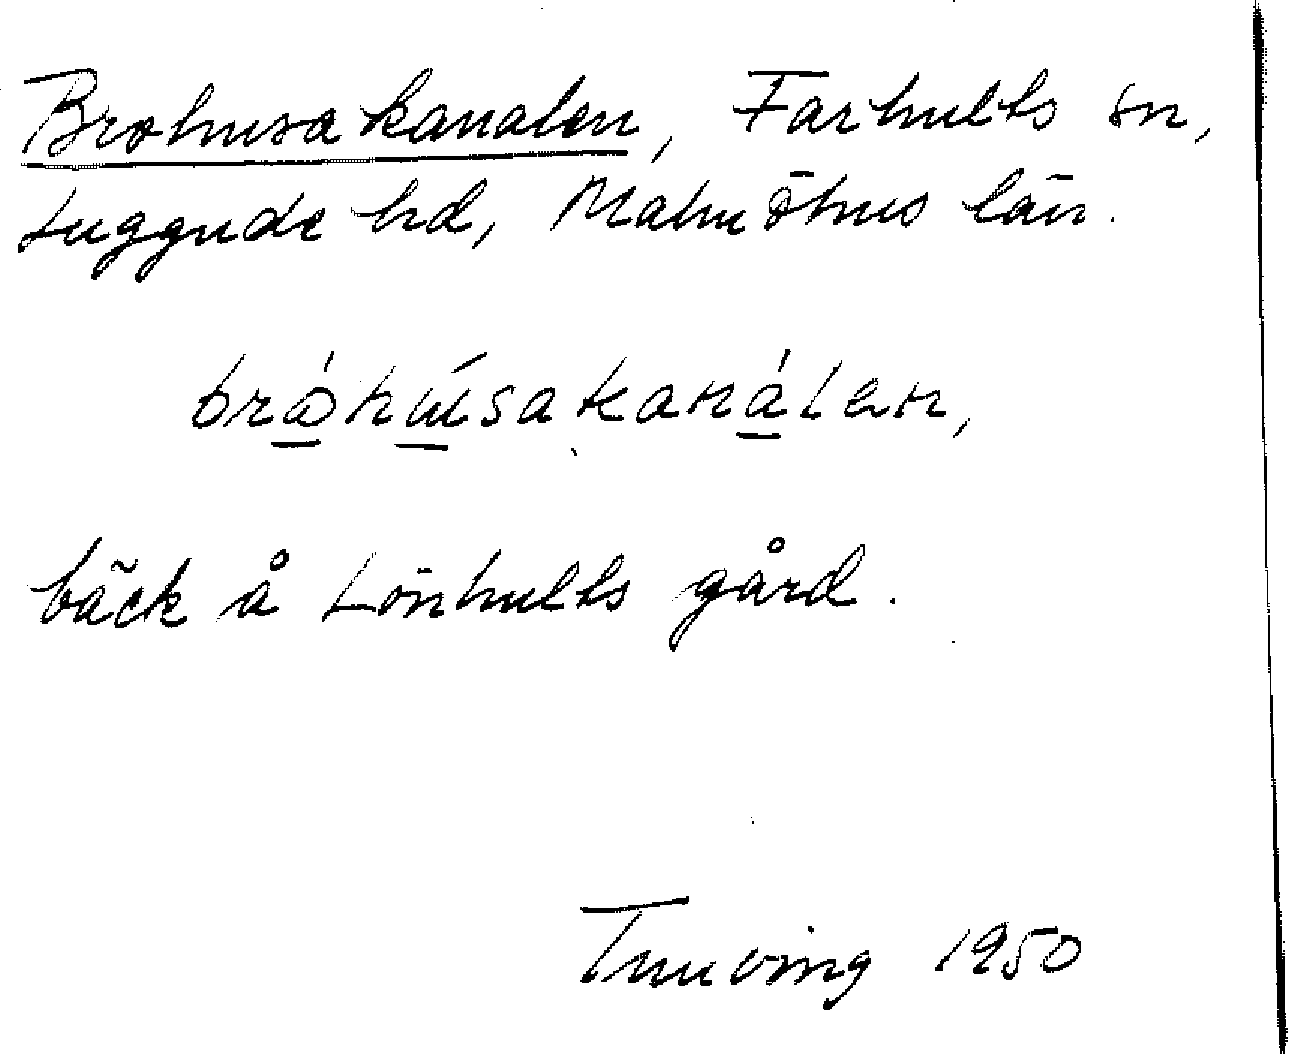 Brohusakanalen, Farhults sn,
Luggude hd, Malmöhus län.
bråhúsakanálen,
bäck å Lönhults gård.
Tuneving 1950